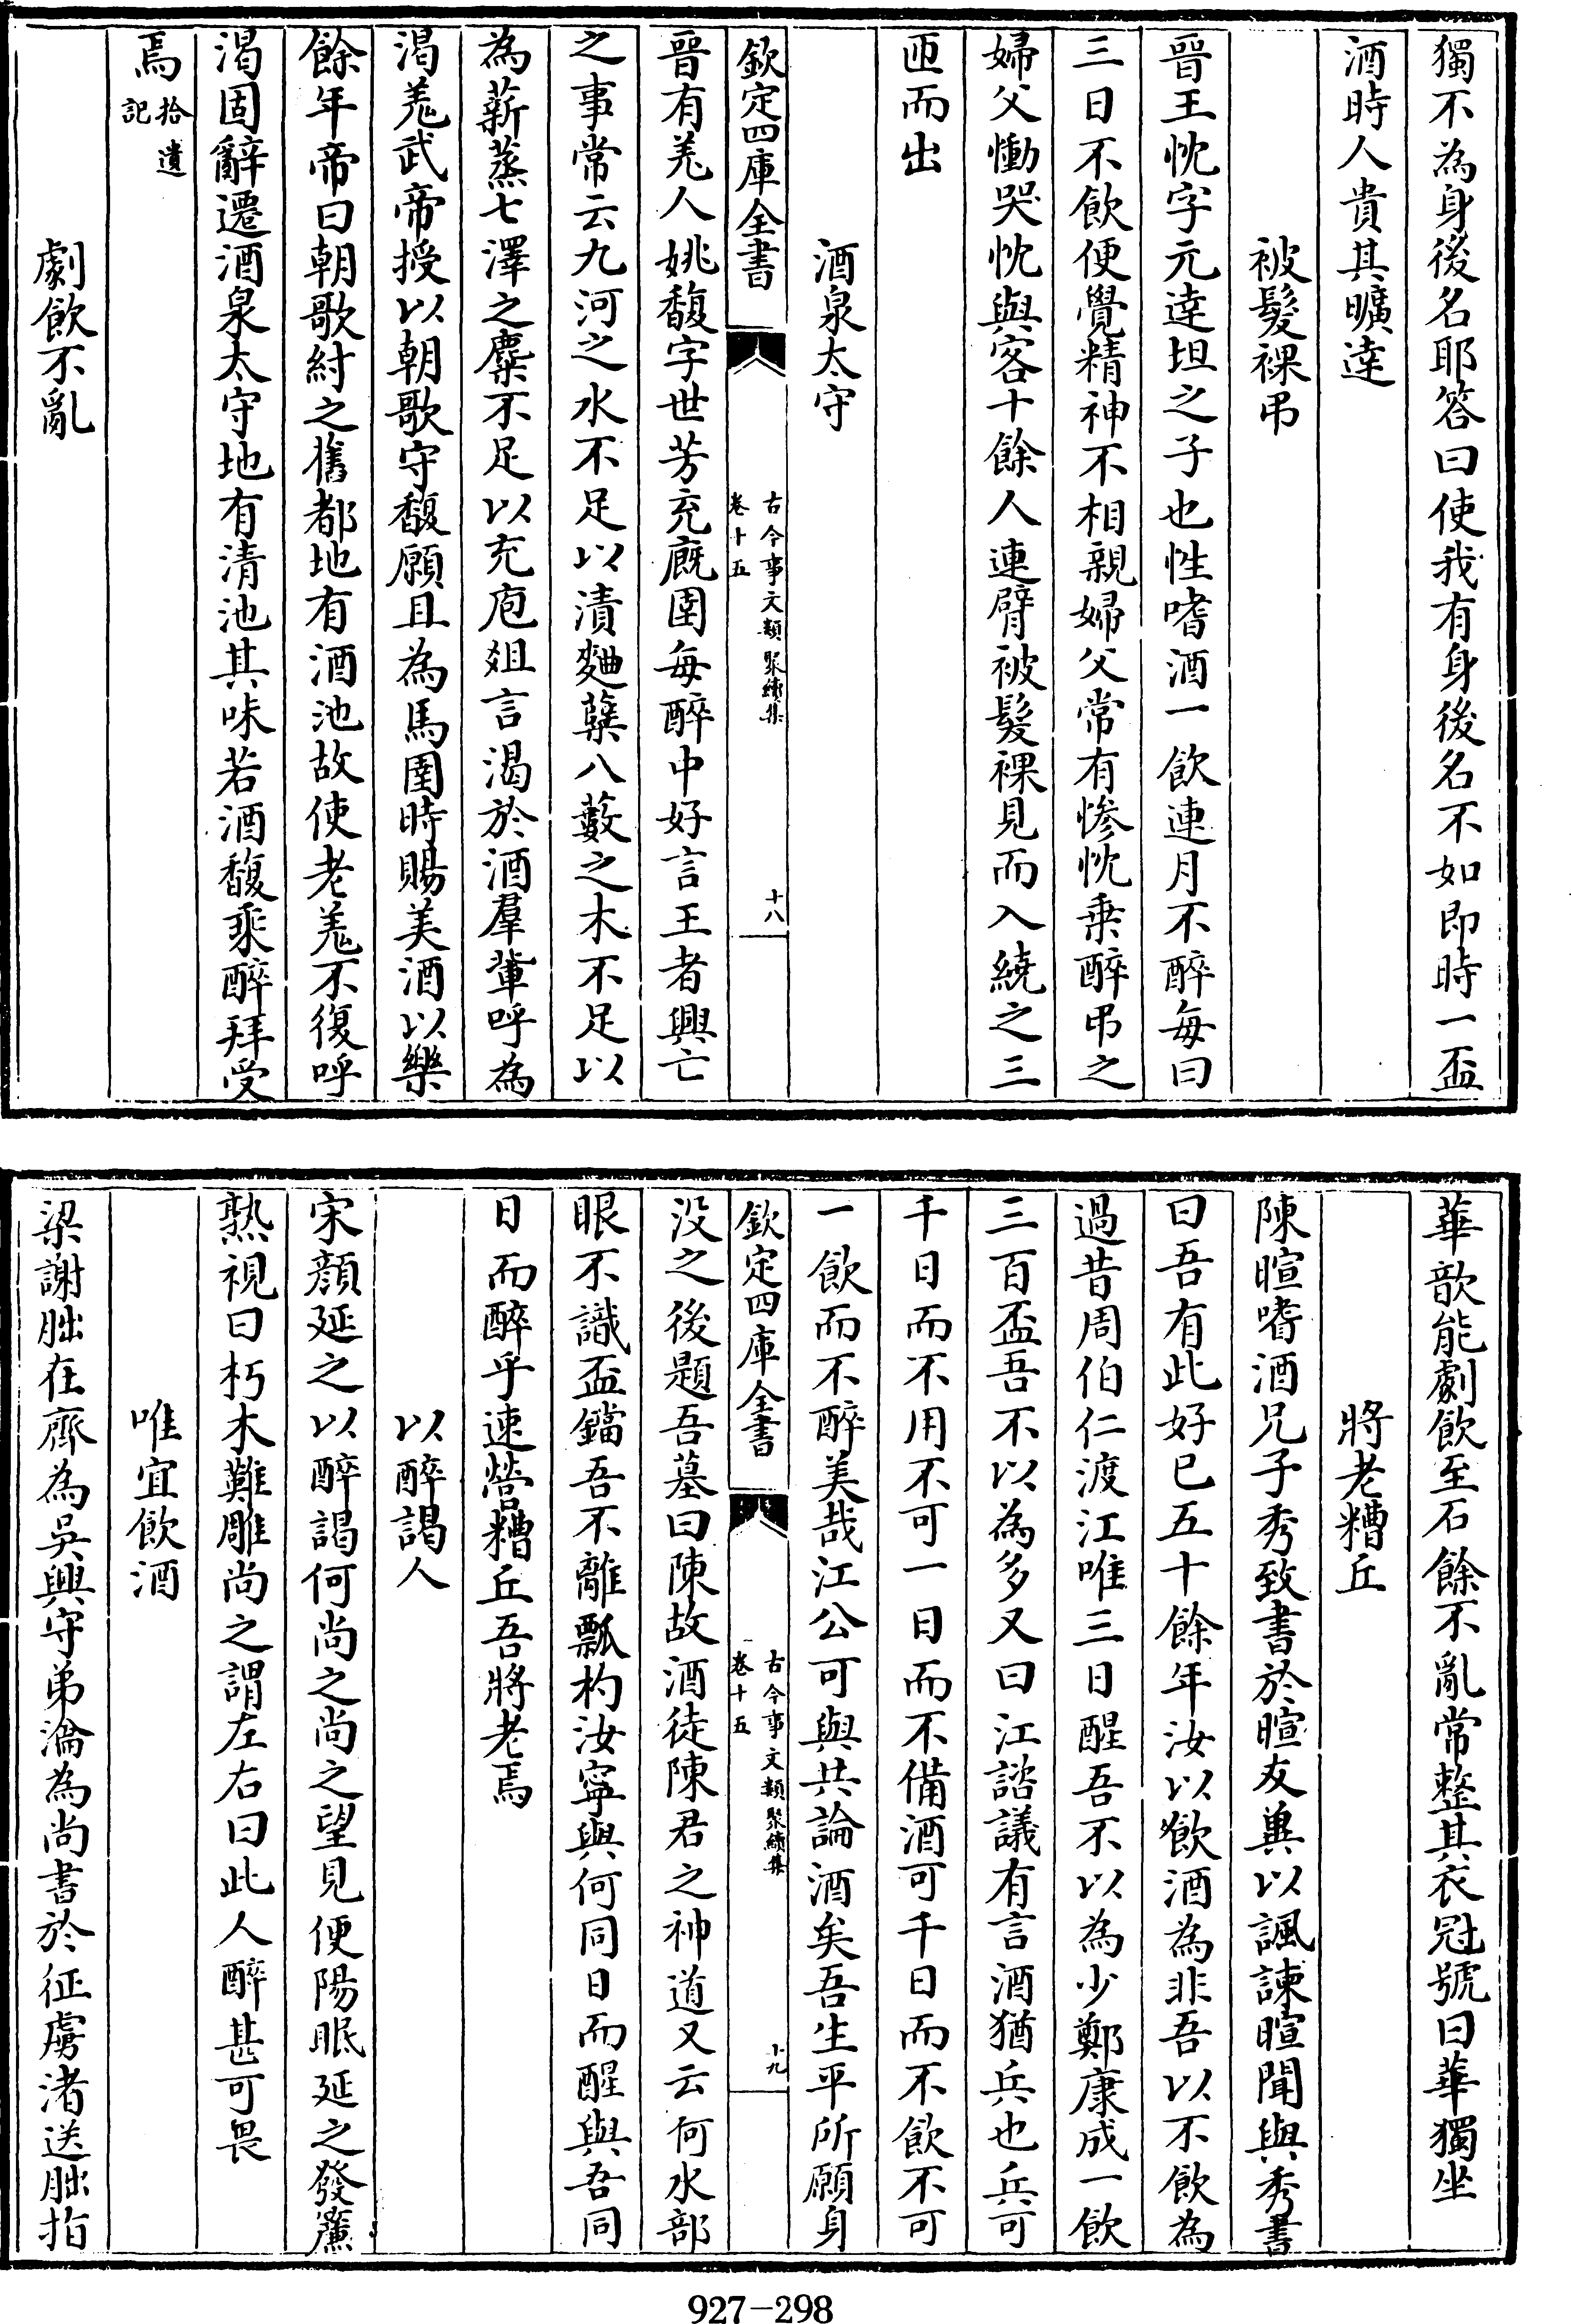 獨不為身後名耶答曰使我有身後名不如即時一盃
酒時人貴其曠達
被髮裸弔
晉王忱字元達坦之子也性嗜酒一飲連月不醉每曰
三日不飲便覺精神不相親婦父常有慘忱乗醉弔之
婦父慟哭忱與客十餘人連臂被髮裸見而入繞之三
匝而出
酒泉太守
欽定四庫全書
古今事文類聚續集
卷十五
十八
晉有羌人姚馥字世芳充廐圉每醉中好言王者興亡
之事常云九河之水不足以漬麯糵八藪之木不足以
為薪蒸七澤之麋不足以充庖俎言渴於酒羣輩呼為
渴羌武帝授以朝歌守馥願且為馬圉時賜美酒以樂
餘年帝曰朝歌紂之舊都地有酒池故使老羌不復呼
渴固辭遷酒泉太守地有清池其味若酒馥乘醉拜受
焉拾遺記
劇飲不亂
華歆能劇飲至石餘不亂常整其衣冠號曰華獨坐
將老糟丘
陳暄嗜酒兄子秀致書於暄友兾以諷諫暄聞與秀書
曰吾有此好已五十餘年汝以飲酒為非吾以不飲為
過昔周伯仁渡江唯三日醒吾不以為少鄭康成一飲
三百盃吾不以為多又曰江諮議有言酒猶兵也兵可
千日而不用不可一日而不備酒可千日而不飲不可
一飲而不醉美哉江公可與共論酒矣吾生平所願身
欽定四庫全書
古今事文類聚續集
卷十五
十九
没之後題吾墓曰陳故酒徒陳君之神道又云何水部
眼不識盃鐺吾不離瓢杓汝寧與何同日而醒與吾同
日而醉乎速營糟丘吾將老焉
以醉謁人
宋顔延之以醉謁何尚之尚之望見便陽眠延之發簾
熟視曰朽木難雕尚之謂左右曰此人醉甚可畏
唯宜飲酒
梁謝朏在齊為吳興守弟瀹為尚書於征虜渚送朏指
927-298